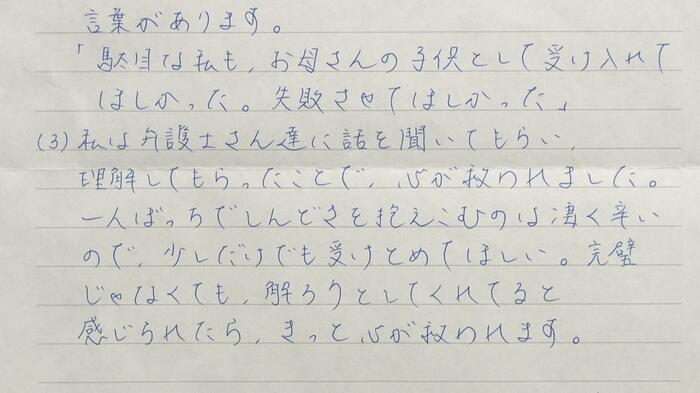 言葉があります。
「駄目な私も、お母さんの子供として受け入れて
ほしかった。失敗させてほしかった」
(3) 私は弁護士さん達に話を聞いてもらい、
理解してもらったことで、心が救われました。
一人ぼっちでしんどさを抱えこむのは凄く辛い
ので、少しだけでも受けとめてほしい。完璧
じゃなくても、解ろうとしてくれてると
感じられたら、きっと心が救われます。